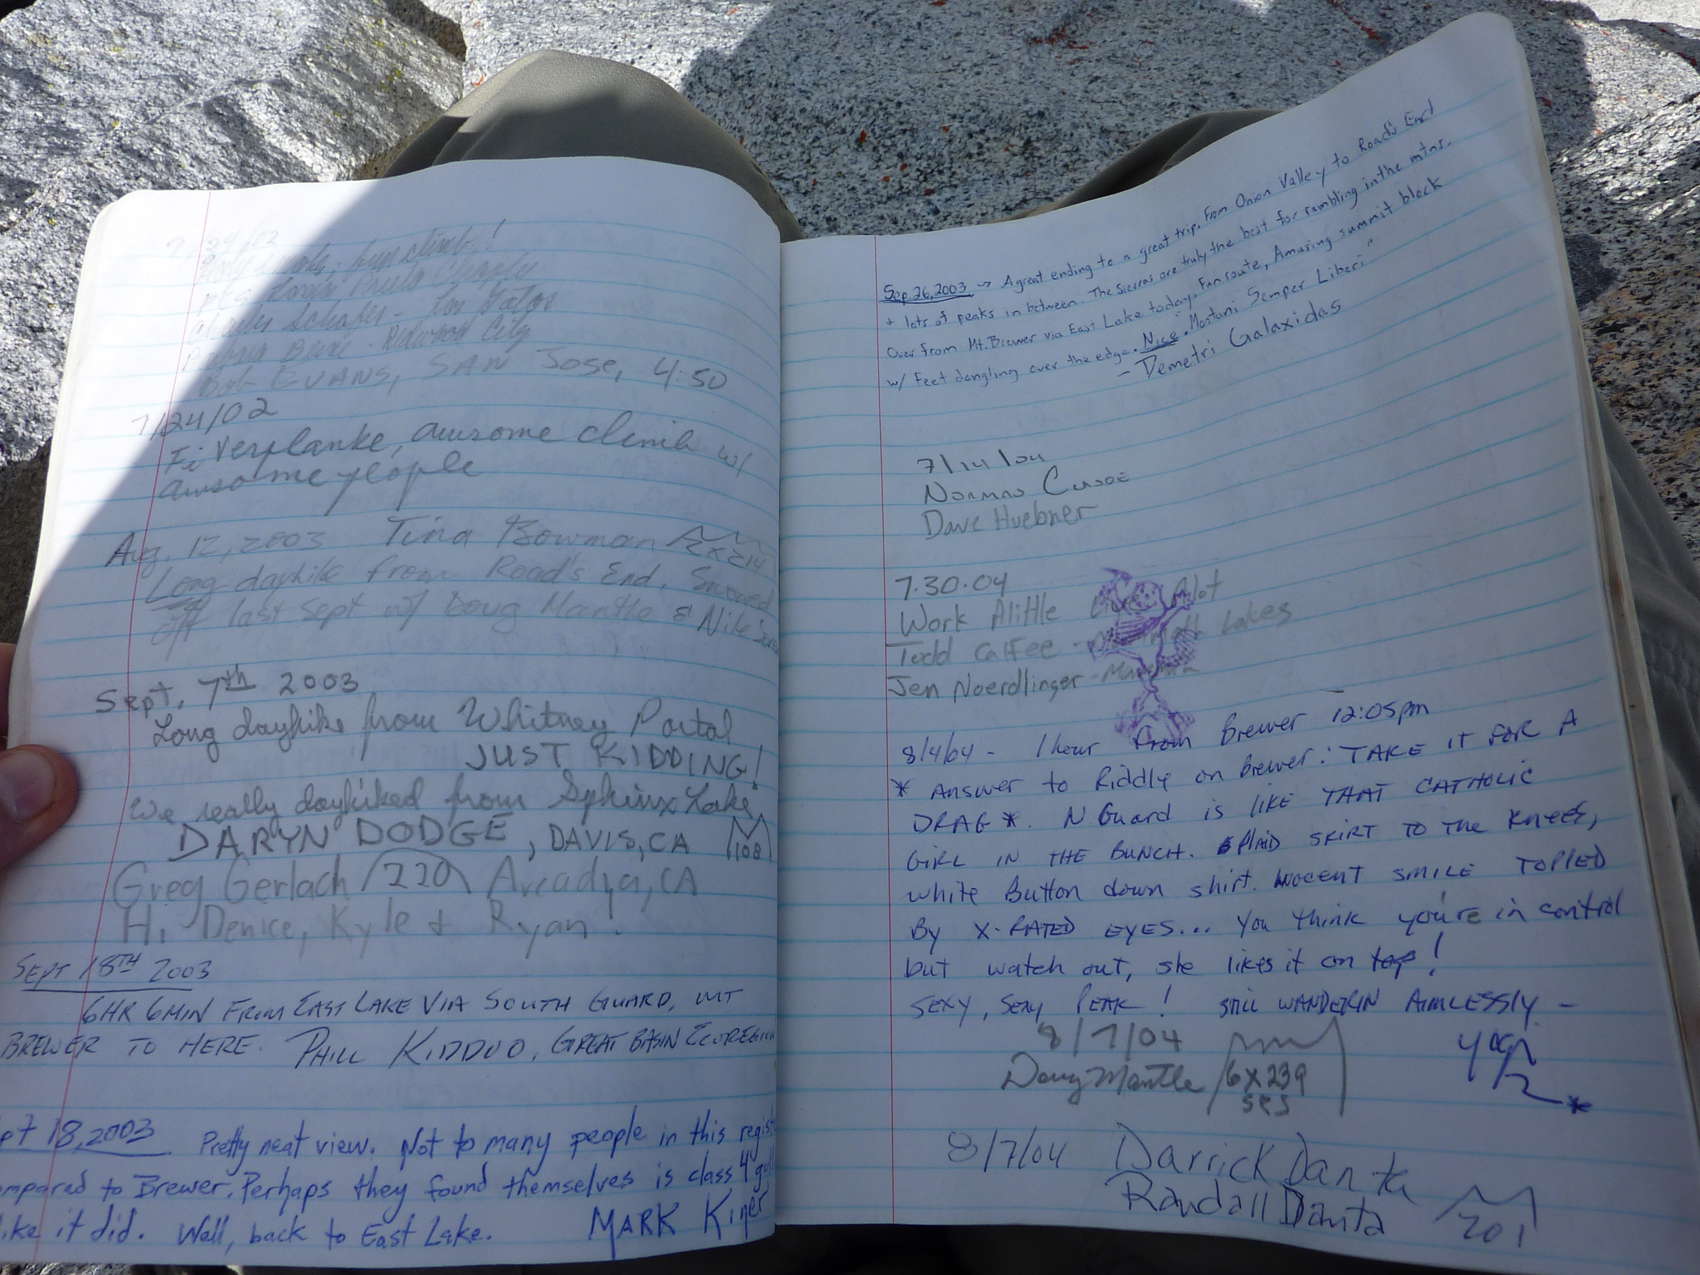 7/24/02
fun climb!
Los Gatos
Redwood City
Bob EVANS, SAN JOSE, 4:50
7/24/02
Fi Verplanke, awsome climb w/
awsome people
Aug. 12, 2003 Tina Bowman
Long dayhike from Road's End. Snowed
off last Sept w/ Doug Mantle &
Sept. 7th 2003
Long dayhike from Whitney Portal
JUST KIDDING!
We really dayhiked from Sphinx Lake
DARYN DODGE, DAVIS, CA 108
Greg Gerlach 220 Arcadia, CA
Hi Denice, Kyle & Ryan!
SEPT 18TH 2003
6HR 6MIN FROM EAST LAKE VIA SOUTH GUARD, MT
BREWER TO HERE. PHILL KIDDOO, GREAT BASIN ECOREGION
pt 18, 2003 Pretty neat view. Not to many people in this regist
mpared to Brewer. Perhaps they found themselves is class 4
ike it did. Well, back to East Lake. MARK
Sep 26, 2003 -> A great ending to a great trip. From Onion Valley to Road's End
+ lots of peaks in between. The Sierras are truly the best for rambling in the mtns.
Over from Mt. Brewer via East Lake today. Fun route, Amazing summit block
w/ Feet dangling over the edge. Nice. "Montani Semper Liberi"
- Demetri Galaxidas
7/14/04
Dave Huebner
7.30.04
Work Alittle
Todd Calfee - Lakes
Jen Noerdlinger -
8/4/04 - 1 hour from Brewer 12:05pm
* Answer to Riddle on Brewer: TAKE IT FOR A
DRAG *. N Guard is like THAT CATHOLIC
GIRL IN THE BUNCH. PLAID SKIRT TO THE KNEES,
White Button down shirt. INOCENT SMILE TOPPED
By X-RATED EYES... You think you're in control
but watch out, she likes it on top!
SEXY, SEXY PEAK! STILL WANDERIN AIMLESSLY -
8/7/04
Doug Mantle 6x239
SPS
8/7/04 Darrick Danta
Randall Danta 201